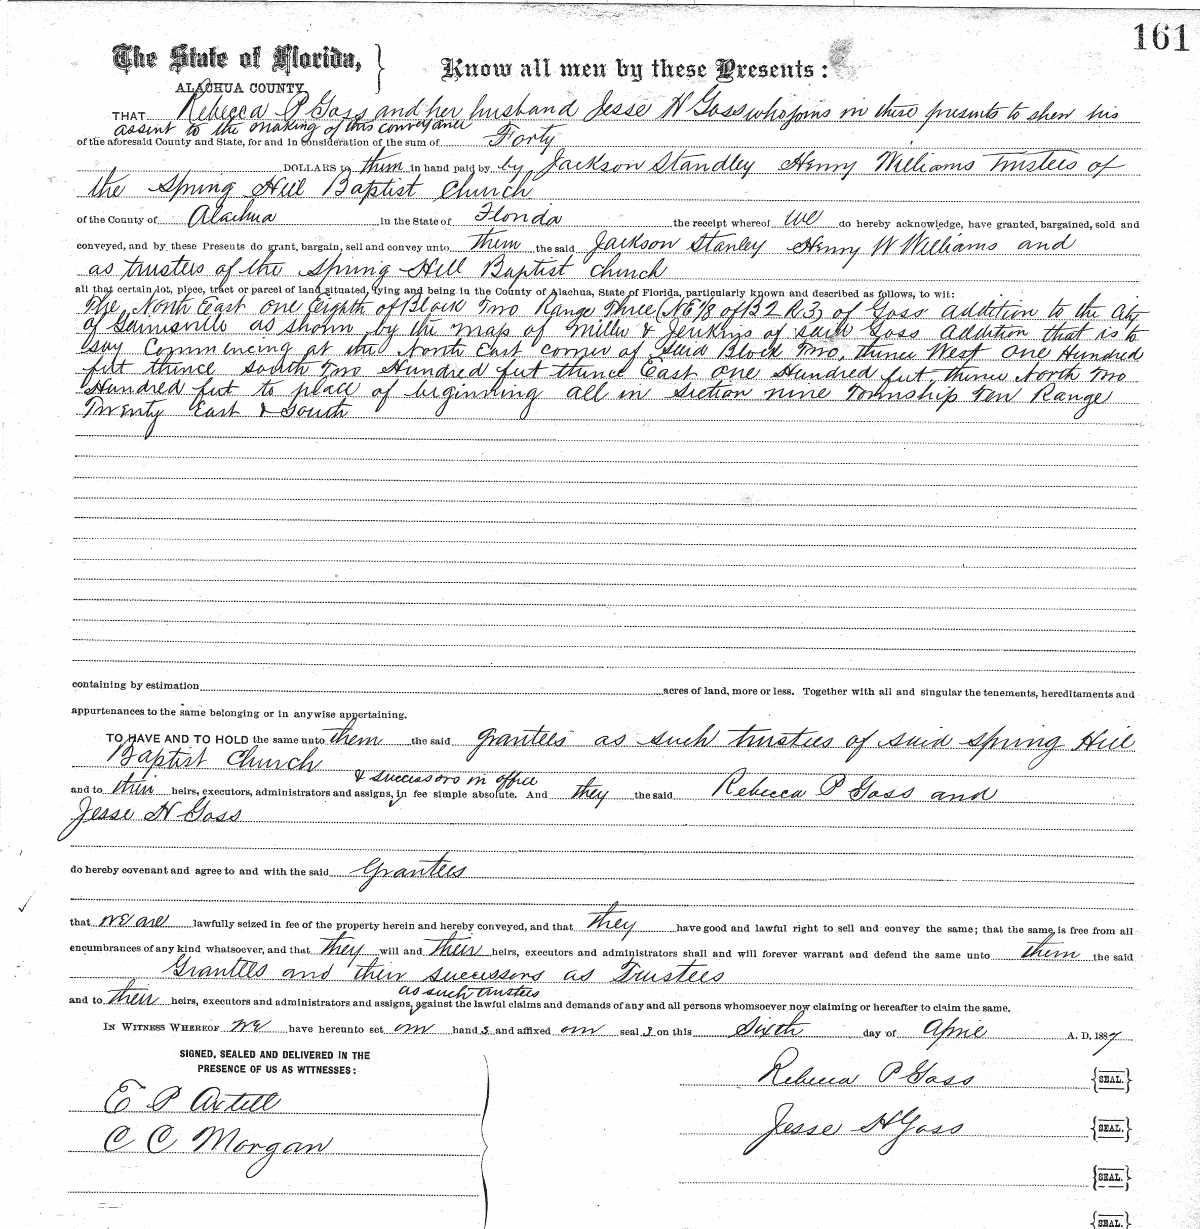 161
The State of Florida,
ALACHUA COUNTY.
Know all men by these Presents:
THAT Rebecca P Goss and her husband Jesse H Goss who joins in these presents to shew his
assent to the making of this conveyance
of the aforesaid County and State, for and in consideration of the sum of Forty
DOLLARS to them in hand paid by by Jackson Standley Henry Williams Trustees of
the Spring Hill Baptist Church
of the County of Alachua in the State of Florida the receipt whereof we do hereby acknowledge, have granted, bargained, sold and
conveyed, and by these Presents do grant, bargain, sell and convey unto them the said Jackson Stanley Henry W Williams and
as trustees of the Spring Hill Baptist church
all that certain lot, piece, tract or parcel of land situated, lying and being in the County of Alachua, State of Florida, particularly known and described as follows, to wit:
The North East one Eighth of Block Two Range Three (NE 1/8 of B2 R3) of Goss addition to the City
of Gainesville as shown by the map of Miller & Jenkins of said Goss Addition that is to
say Commencing at the North East corner of said Block Two, thence West One Hundred
feet thence South Two Hundred feet thence East one Hundred feet, thence North Two
Hundred feet to place of beginning all in Section nine Township Ten Range
Twenty East & South
containing by estimation acres of land, more or less. Together with all and singular the tenements, hereditaments and
appurtenances to the same belonging or in anywise appertaining.
TO HAVE AND TO HOLD the same unto them the said grantees as such trustees of said Spring Hill
Baptist Church
& successors in office
and to their heirs, executors, administrators and assigns, in fee simple absolute. And they the said Rebecca P Goss and
Jesse H Goss
do hereby covenant and agree to and with the said Grantees
that we are lawfully seized in fee of the property herein and hereby conveyed, and that they have good and lawful right to sell and convey the same; that the same is free from all
encumbrances of any kind whatsoever, and that they will and their heirs, executors and administrators shall and will forever warrant and defend the same unto them the said
Grantees and their successors as Trustees
as such trustees
and to their heirs, executors and administrators and assigns, against the lawful claims and demands of any and all persons whomsoever now claiming or hereafter to claim the same.
IN WITNESS WHEREOF we have hereunto set our hand s and affixed our seal s on this Sixth day of April A. D. 1887
SIGNED, SEALED AND DELIVERED IN THE
PRESENCE OF US AS WITNESSES:
Rebecca P Goss {SEAL.}
E P Axtell
Jesse H Goss {SEAL.}
C C Morgan
{SEAL.}
{SEAL.}